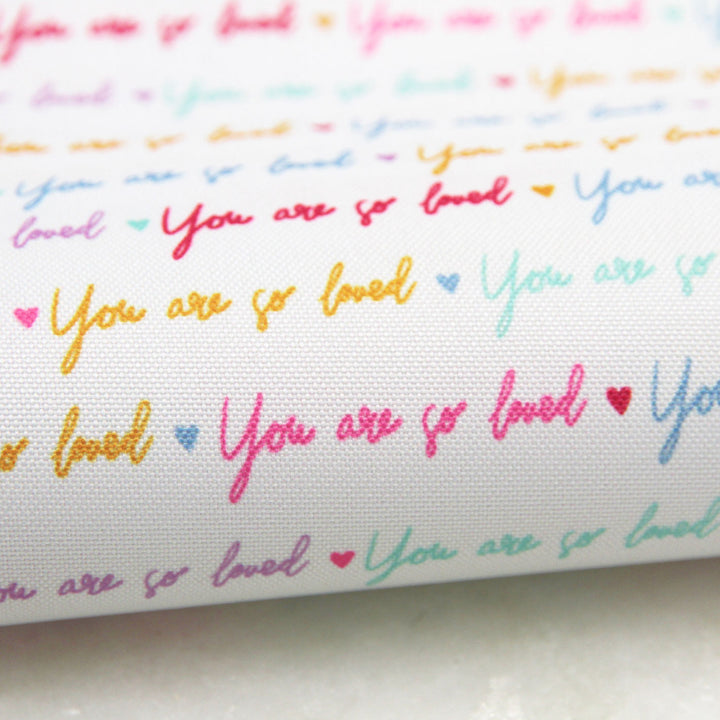 You are so loved You are so loved
loved You are so loved You
You are so loved You are so
You are so loved You are so loved
loved You are so loved You are
You are so loved You are so
so loved You are so loved You
you are so loved You are so loved